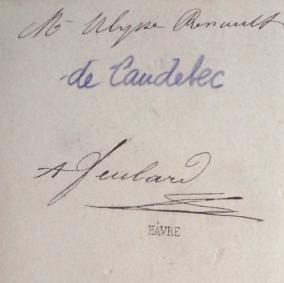 Mr Ulysse Renault
de Caudebec
A Feulard
HÂVRE